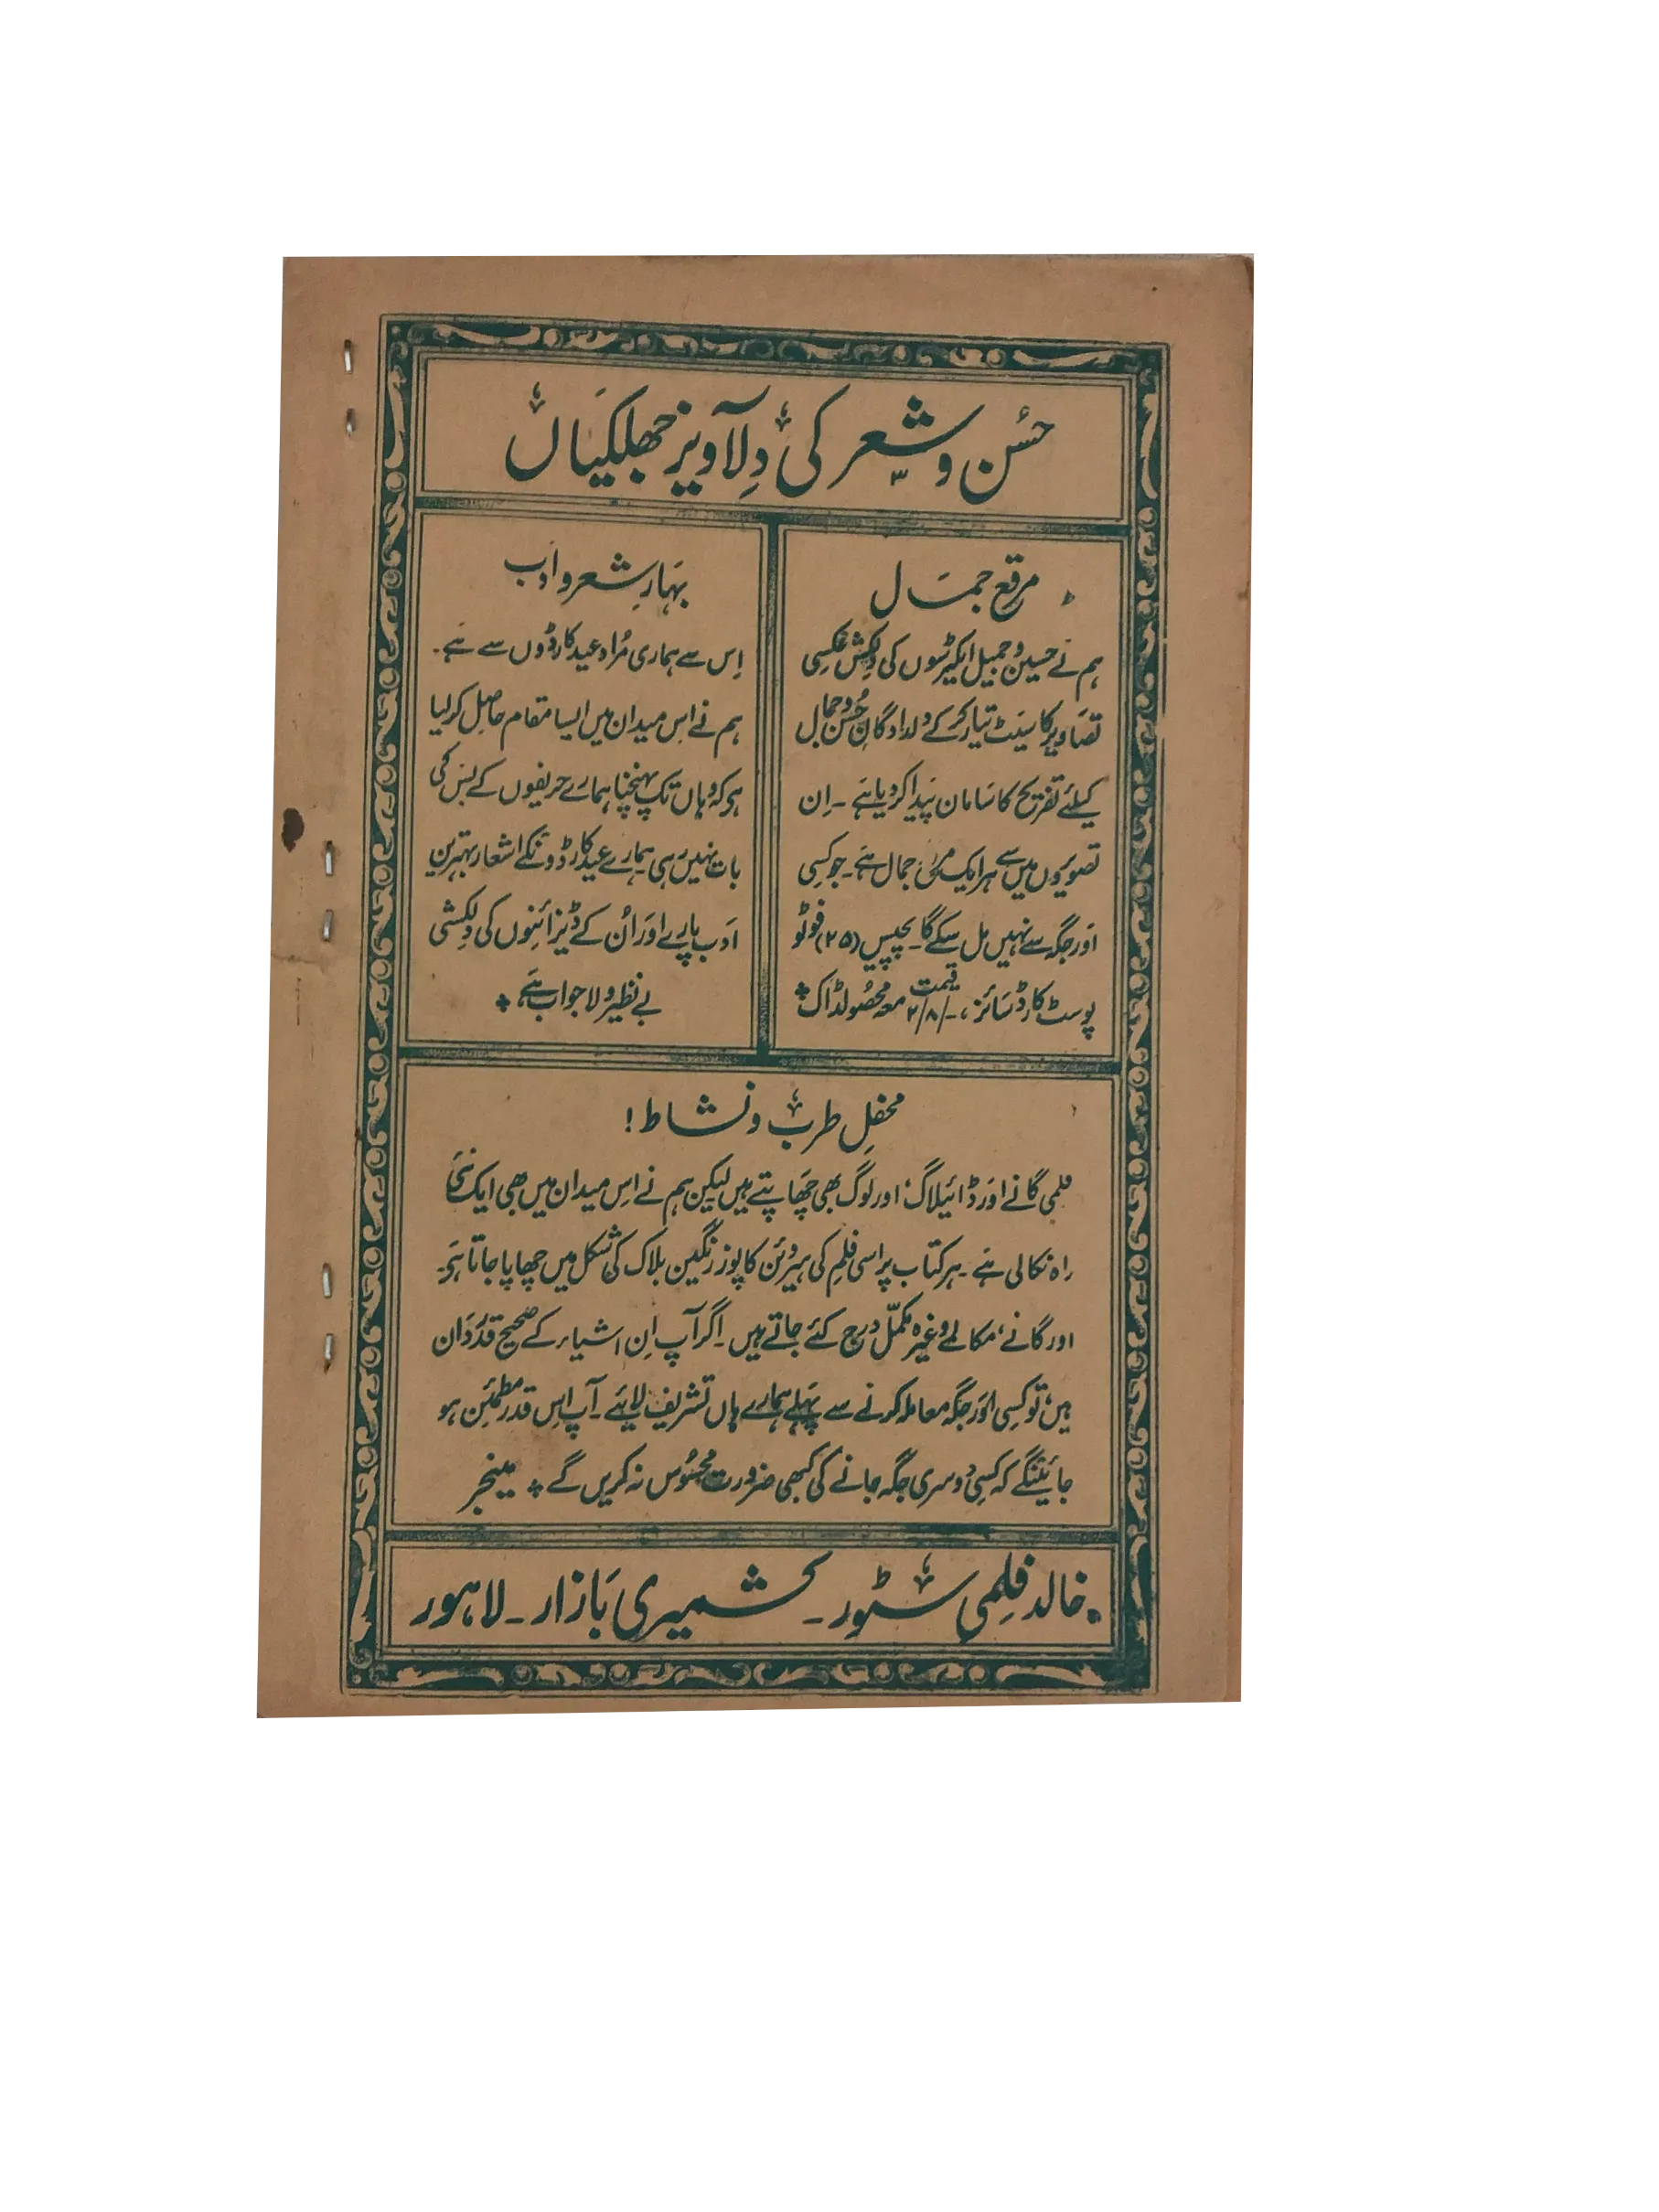 حسن و شعر کی دلآویز جھلکیاں
مرقع جمال
ہم نے حسین و جمیل ایکٹرسوں کی دلکش عکسی
تصاویر کا سیٹ تیار کر کے دلدادگانِ حُسن و جمال
کیلئے تفریح کا سامان پیدا کر دیا ہے۔ اِن
تصویروں میں سے ہر ایک مرقع جمال ہے۔ جو کسی
اور جگہ سے نہیں مل سکے گا۔ پچیس (۲۵) فوٹو
پوسٹ کارڈ سائز، قیمت -/۲/۸ معہ محصولڈاک
بہارِ شعر و ادب
اِس سے ہماری مُراد عید کارڈوں سے ہے۔
ہم نے اس میدان میں ایسا مقام حاصل کر لیا
ہے کہ وہاں تک پہنچنا ہمارے حریفوں کے بس کی
بات نہیں رہی۔ ہمارے عید کارڈونکے اشعار بہترین
ادب پارے اور اُن کے ڈیزائنوں کی دلکشی
بے نظیر و لاجواب ہے
محفلِ طرب و نشاط!
فلمی گانے اور ڈائیلاگ اور لوگ بھی چھاپتے ہیں لیکن ہم نے اِس میدان میں بھی ایک نئی
راہ نکالی ہے۔ ہر کتاب پر اسی فلم کی ہیروئن کا پوز رنگین بلاک کی شکل میں چھاپا جاتا ہے۔
اور گانے، مکالمے وغیرہ مکمّل درج کئے جاتے ہیں۔ اگر آپ اِن اشیاء کے صحیح قدردان
ہیں تو کسی اور جگہ معاملہ کرنے سے پہلے ہمارے ہاں تشریف لایئے۔ آپ اِس قدر مطمئن ہو
جائینگے کہ کسی دوسری جگہ جانے کی کبھی ضرورت محسُوس نہ کریں گے ؞ مینجر
خالد فلمی سٹور۔ کشمیری بازار۔ لاہور